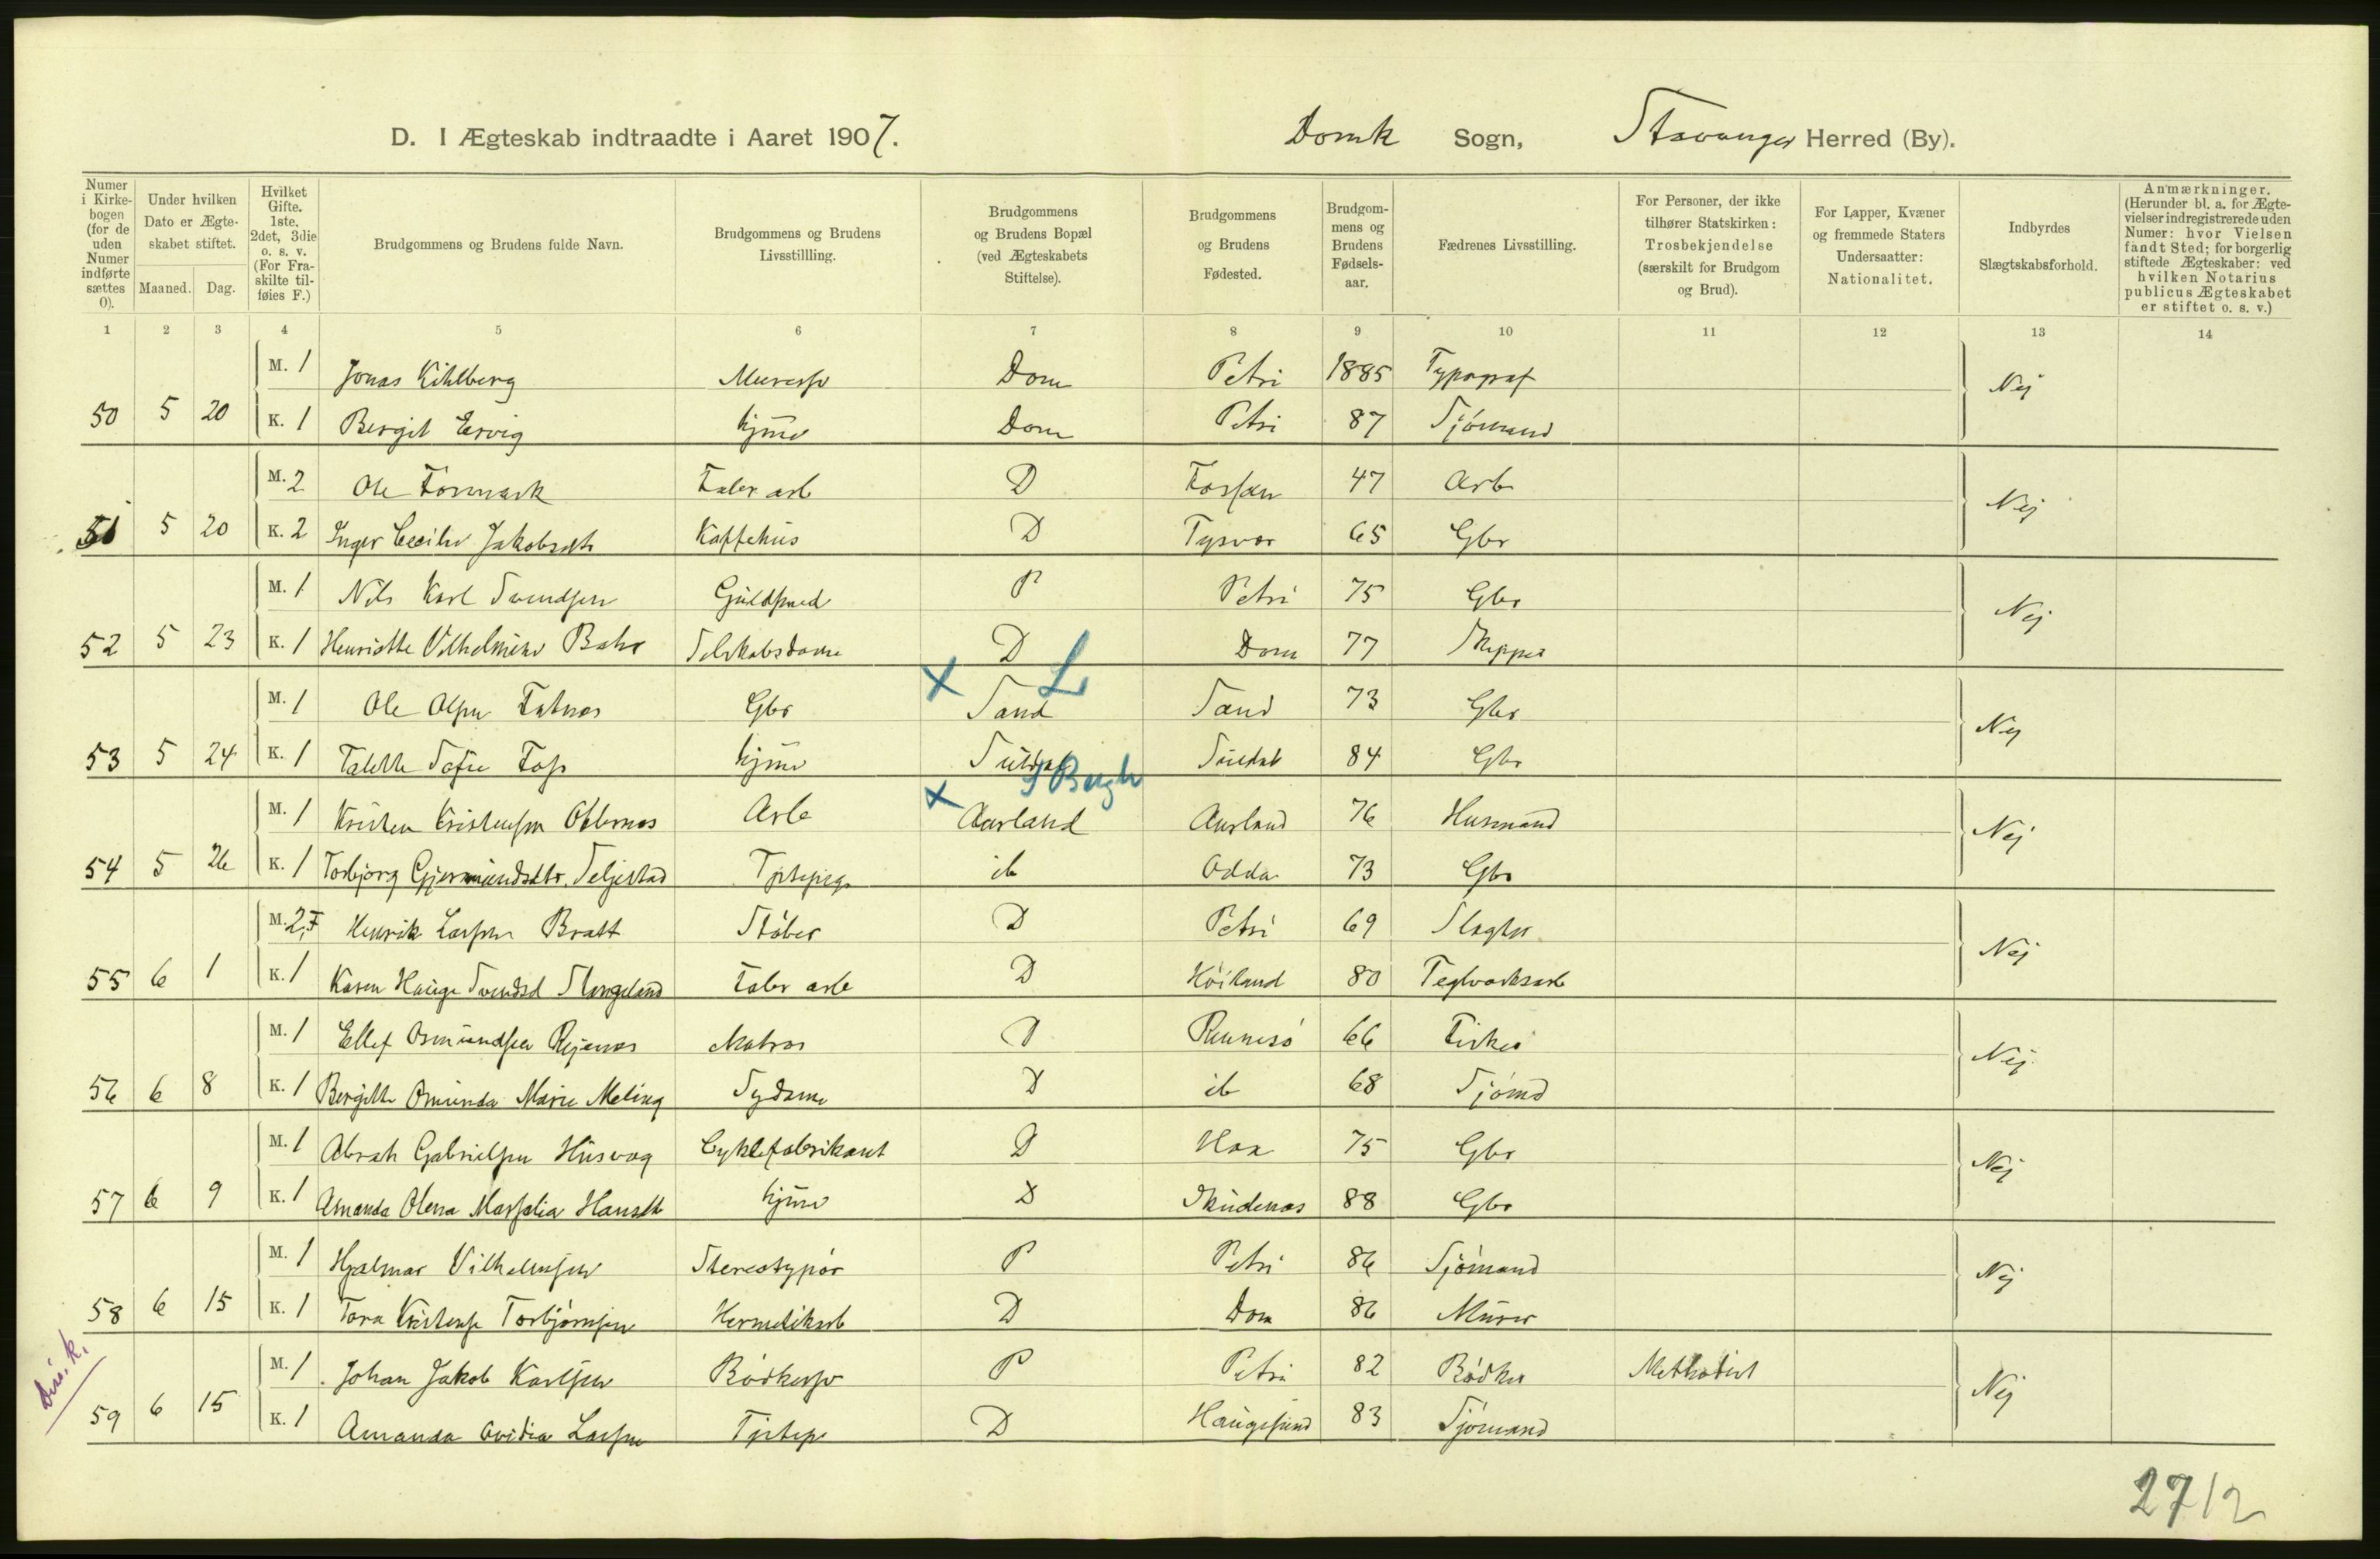 D. I Ægteskab indtraadte i Aaret 1907. Domk Sogn, Stavanger Herred (By).
Numer i Kirkebogen (for de uden Numer indførte sættes 0).
Under hvilken Dato er Ægteskabet stiftet.
Maaned. Dag.
Hvilket Gifte. 1ste, 2det, 3die o. s. v. (For Fraskilte tilføies F.)
Brudgommens og Brudens fulde Navn.
Brudgommens og Brudens Livsstillling.
Brudgommens og Brudens Bopæl (ved Ægteskabets Stiftelse).
Brudgommens og Brudens Fødested.
Brudgommens og Brudens Fødselsaar.
Fædrenes Livsstilling.
For Personer, der ikke tilhører Statskirken: Trosbekjendelse (særskilt for Brudgom og Brud).
For Lapper, Kvæner og fremmede Staters Undersaatter: Nationalitet.
Indbyrdes Slægtskabsforhold.
Anmærkninger. (Herunder bl. a. for Ægtevielser indregistrerede uden Numer: hvor Vielsen fandt Sted; for borgerlig stiftede Ægteskaber: ved hvilken Notarius publicus Ægteskabet er stiftet o. s. v.)
1 2 3 4 5 6 7 8 9 10 11 12 13 14
M. 1 Jonas Kihlberg Murersv Dom Petri 1885 Typograf Nej
50 5 20 K. 1 Bergit Ervig Hjme Dom Petri 87 Sjömand
M. 2 Ole Formark Fabr arb D Forsan 47 Arb Nej
51 5 20 K. 2 Inger Cecilie Jakobsdtr Kaffehus D Tysvær 65 Gbr
M. 1 Nils Karl Svendsen Guldsmed P Petri 75 Gbr Nej
52 5 23 K. 1 Henriette Vilhelmine Selskabsdame D Dom 77 Skipper
M. 1 Ole Olsen Gbr × Sand L Sand 73 Gbr Nej
53 5 24 K. 1 Talette Sofie Hjme Suldal Suldal 84 Gbr
M. 1 Kristen Kristensen Arb × Aurland Aurland 76 Husmand Nej
54 5 26 K. 1 Torbjørg Gjermundsdtr. Seljestad Tjstepige ib Odda 73 Gbr
M. 2, F Henrik Larsen Bratt Støber D Petri 69 Slagter Nej
55 6 1 K. 1 Karen Hauge Svendsd Stangeland Fabr arb D Höiland 80 Teglværksarb
M. 1 Ellef Osmundsen Matros D Rennesö 66 Fisker Nej
56 6 8 K. 1 Bergitte Omunda Marie Meling Sydame D ib 68 Sjömd
M. 1 Abrah Gabrielsen Husvæg Cyklefabrikant D 75 Gbr Nej
57 6 9 K. 1 Amanda Olena Marselia Hansdtr Hjme D Skudenæs 88 Gbr
M. 1 Hjalmar Vilhelmsen Stereotypør P Petri 86 Sjömand Nej
58 6 15 K. 1 Tora Kristense Torbjørnsen Hermetikarb D Dom 86 Murer
Diss. k.
M. 1 Johan Jakob Karlsen Bødkersv P Petri 82 Bødker Methodist Nej
59 6 15 K. 1 Amanda Ovidia Larsen Tjstep D Haugesund 83 Sjömand
2712